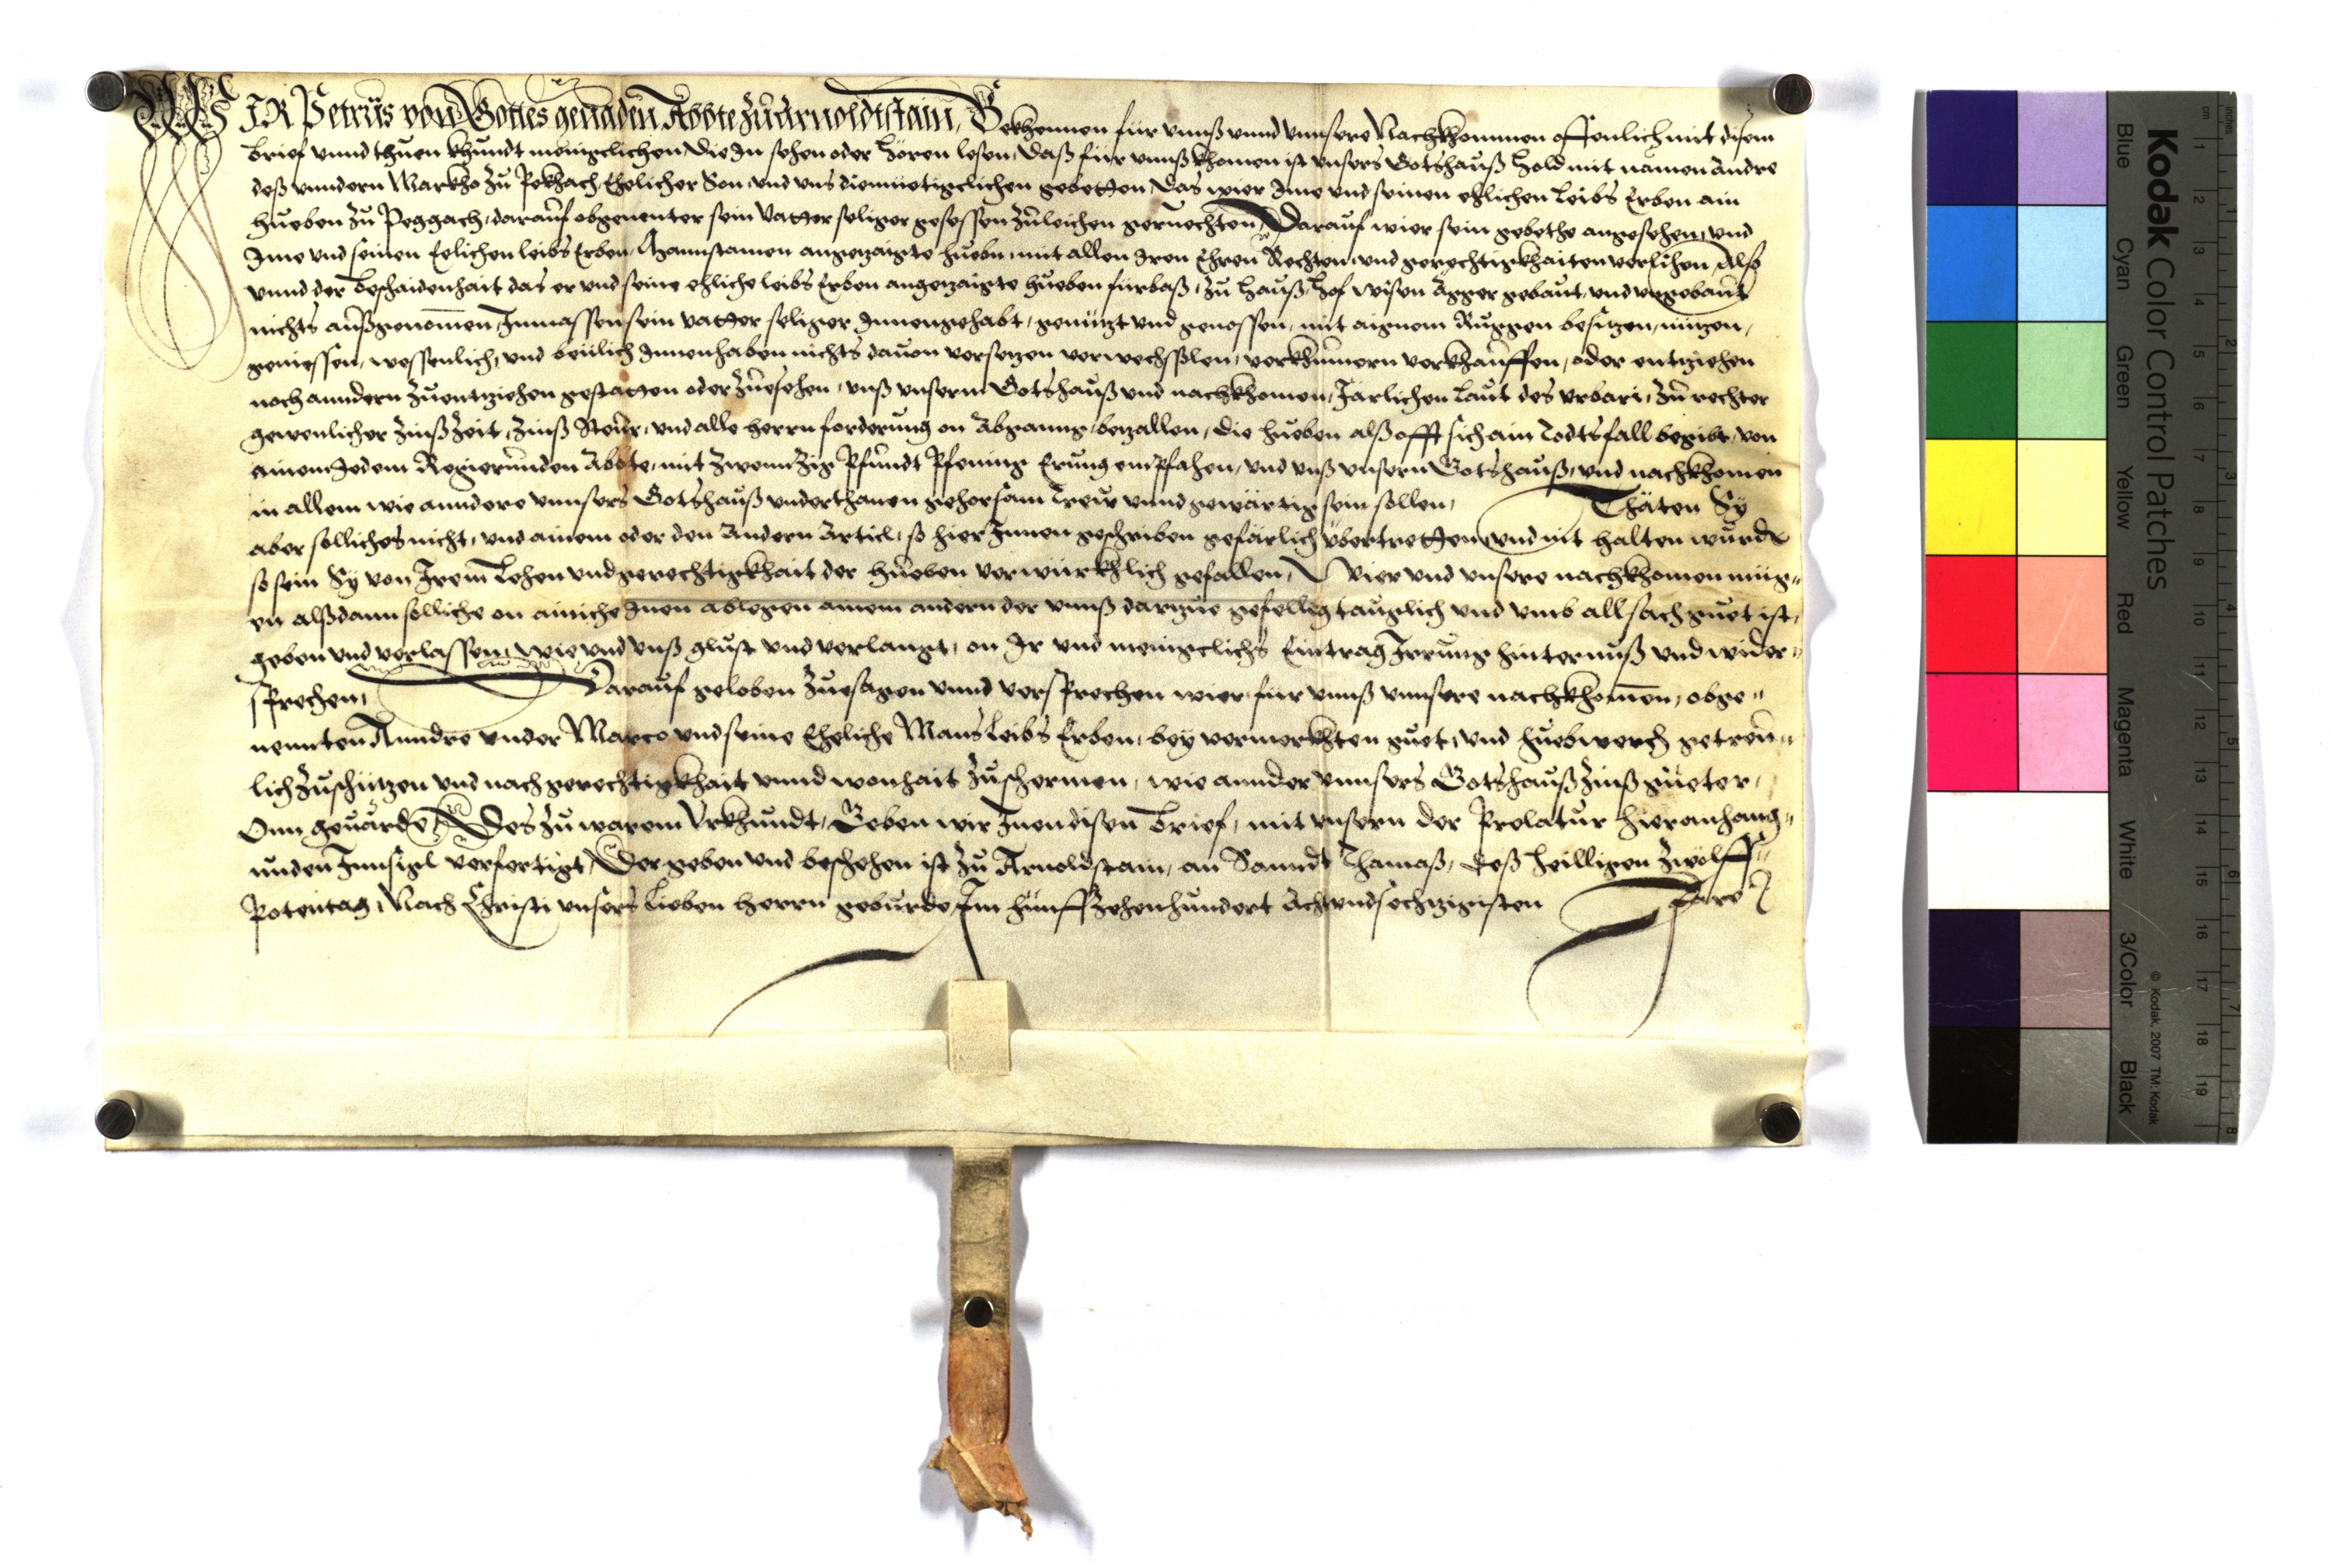 WIR Petrus von Gottes genaden Abbte zu Arnoldtstain, Bekhennen für vnnß vnnd vnnsere Nachkhommen offenlich mit disem
brief vnnd thuen khundt menigclichen, die In sehen oder hören lesen, daß für vnnß khomen ist vnsers Gotshauß hold mit namen Andre
deß vnndern Markho zu Pekhach, Ehelicher Son, vnd vns diemüetigclichen gebetten, das wier Ime vnd seinen ehlichen Leibs Erben ain
hueben zu Peggach, darauf obgenenter sein Vatter seliger gesessen zuleichen geruechten, Darauf wier sein gebethe angesehen, vnd
Ime vnd seinen Eelichen leibs Erben, Mannstamen angezaigte hueben, mit allen Iren Ehren Rechten, vnd gerechtigkhaiten verlihen, Also
vnnd der beschaidenhait das er vnd seine ehliche leibs Erben angezaigte hueben fürbaß, zu hauß, hof wisen Ägger gebaut, vnd vngebaut
nichts außgenomen, Inmassen sein vatter seliger Innengehabt, genützt vnd genossen, mit aignem Ruggen besitzen, nützen,
geniessen, wessenlich, vnd beülich Innenhaben nichts dauon versetzen verwechsslen, verkhumern verkhauffen, oder entziehen
noch anndern zuentziehen gestatten oder zuesehen, vnß vnserm Gotshauß vnd nachkhomen, Järlichen laut des vrbari, zu rechter
gewenlicher zinß zeit, zinß Steur, vnd alle herrn forderung on Abganng bezallen, die hueben alß offt sich ain Todtsfall begibt, von
ainem Jedem Regierunden Abbte, mit zwennzig Pfundt Pfening Erung empfahen, vnd vnß vnsern Gotshauß, vnd nachkhomen
in allem wie anndere vnnsers Gotshauß vnderthanen gehorsam Treu vnnd gewärtig sein sollen, Thäten Sy
aber solliches nicht, vnd ainem oder den Andern Articl, so hier Innen geschriben gefärlich übertretten, vnd nit halten wurde
so sein Sy von Irem Lehen vnd gerechtigkhait der hueben verwürkhlich gefallen, Wier vnd vnsere nachkhomen müg-
en alßdann solliche on ainiche Inen ablegen ainem andern der vnnß darzue gefellig tauglich vnd vmb all sach guet ist,
geben vnd verlassen, wie vnd vnß glust vnd verlangt, on Ir vnd menigclichs Eintrag Irrung hinternuß vnd wider-
sprechen, Darauf geloben zuesagen vnnd versprechen wier für vnnß vnnsere nachkhomen, obge-
nennten Anndre vnder Marco vnd seine Eheliche Mans leibs Erben, bey vermerkhten guet, vnd huebwerch getreu-
lich zuschützen vnd nach gerechtigkhait vnnd wonhait zuschermen, wie annder vnnsers Gotshauß zinß güeter,
Onn geuärde, Des zu warem Vrkhundt, Geben wir Inen disen brief, mit vnsern der Prelatur hieranhang-
unden Innsigl verfertigt, Der geben vnd beschehen ist zu Arnoldstain, an Sanndt Thomaß, deß heilligen zwölff-
potentag, Nach Christi vnsers lieben herrn geburde, Im fünffzehenhundert Achtundsechzigisten Jare
Kodak Color Control Patches
Blue Cyan Green Yellow Red Magenta White 3/Color Black
© Kodak, 2007 TM: Kodak
cm 1 2 3 4 5 6 7 8 9 10 11 12 13 14 15 16 17 18 19
inches 1 2 3 4 5 6 7 8